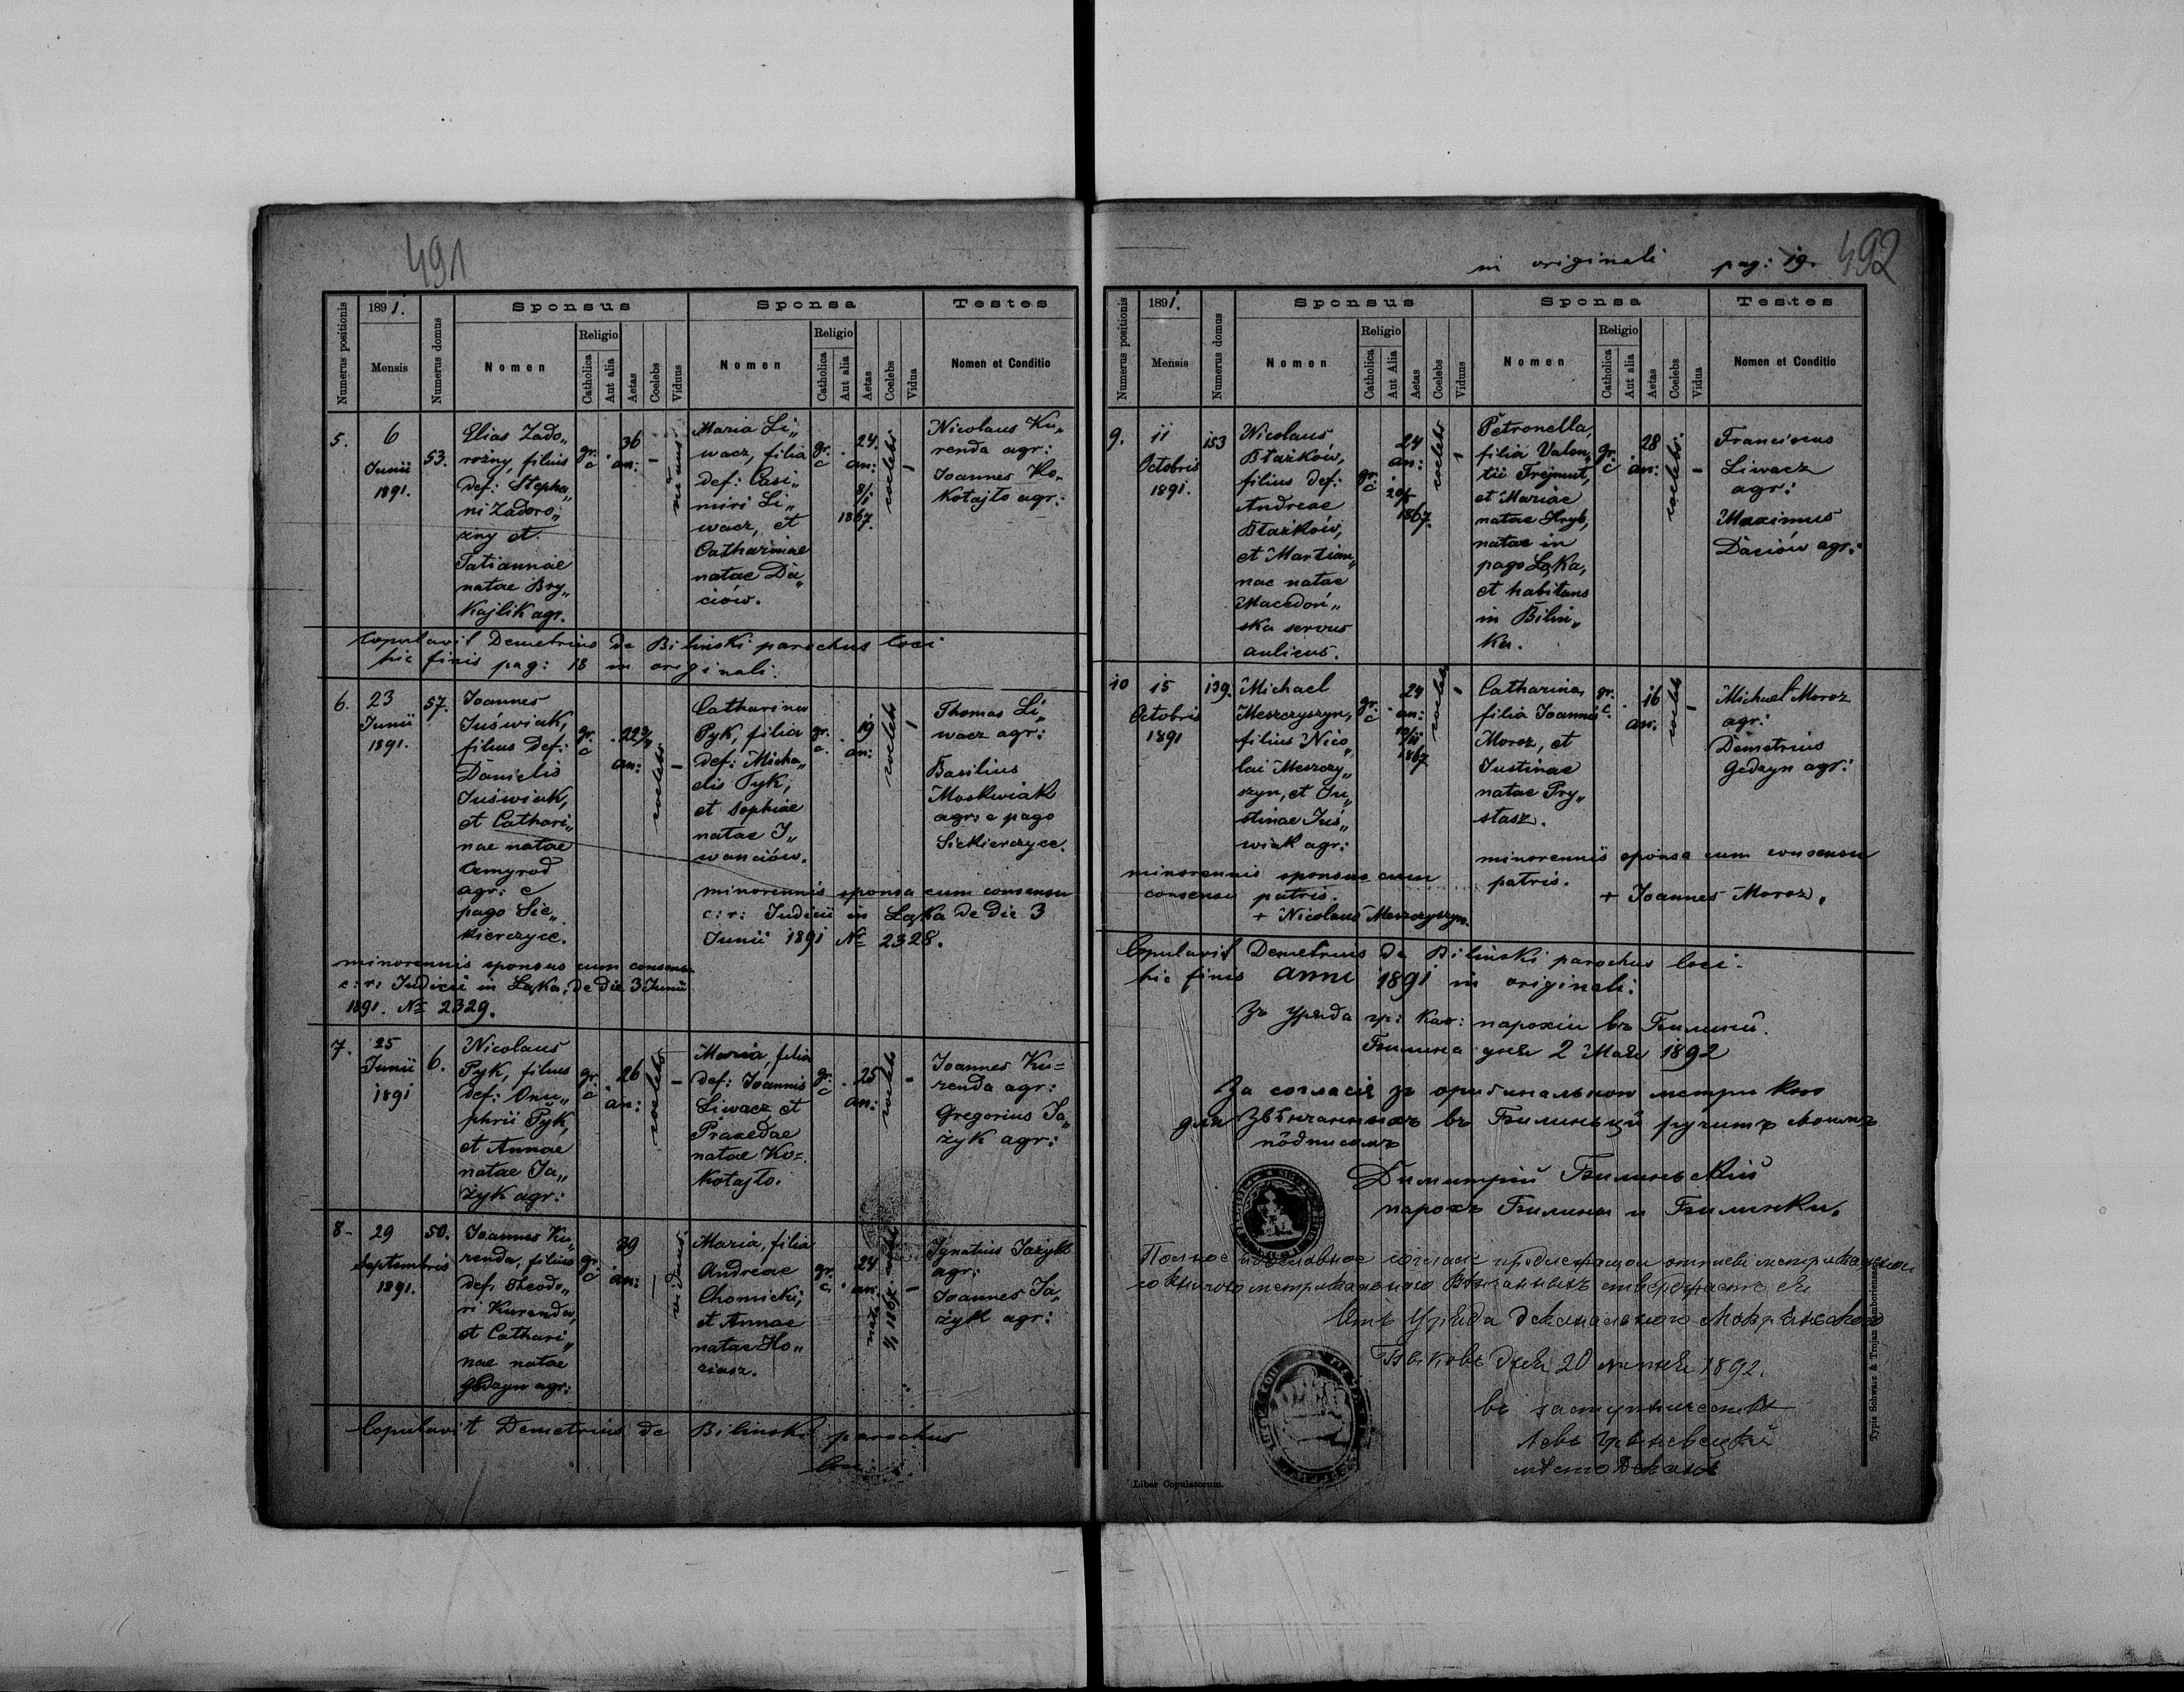 491
Numerus positionis
1891.
Mensis
Numerus domus
Sponsus
Nomen
Religio
Catholica
Aut alia
Aetas
Coelebs
Viduus
Sponsa
Nomen
Religio
Catholica
Aut alia
Aetas
Coelebs
Vidua
Testes
Nomen et Conditio
5.
6
Junii
1891.
53.
Elias Zado„
rożny, filius
def: Stepha„
ni Zadoro„
żny et
Tatiannae
natae Bry„
kajlik agr.
gr.
c
36
an:
–
viduus
Maria Li„
wacz, filia
def: Casi„
miri Li„
wacz, et
Catharinae
natae Da„
ciów.
gr.
c
24.
an:
8/1
1867.
coelebs
–
Nicolaus Ku„
renda agr:
Joannes Ko„
kotajło agr:
Copulavit Demetrius de Bilinski parochus loci
hic finis pag: 18 in originali.
6.
23
Junii
1891.
57.
Joannes
Juświak,
filius def:
Danielis
Juświak,
et Cathari„
nae natae
Czmyrod
agr: e
pago Sie„
kierczyce.
gr.
c
22 3/4
an:
coelebs
–
Catharina
Pyk, filia
def: Micha„
elis Pyk,
et Sophiae
natae I„
wanciów.
gr.
c.
19.
an:
coelebs
–
Thomas Li„
wacz agr:
Basilius
Moskwiak
agr: e pago
Siekierczyce.
minorennis sponsa cum consensu
c: r: Judicii in Łąka de die 3
Junii 1891 № 2328.
minorennis sponsus cum consensu
c: r: Judicii in Łąka, de die 3 Junii
1891. № 2329.
7.
25
Junii
1891
6.
Nicolaus
Pyk, filius
def: Onu„
phrii Pyk,
et Annae
natae Ja„
żyk agr:
gr.
c
26
an:
coelebs
–
Maria, filia
def: Joannis
Liwacz et
Praxedae
natae Ko=
kotajło.
gr.
c
25
an:
coelebs
–
Joannes Ku=
renda agr:
Gregorius Ja„
żyk agr:
8-
29
Septembris
1891.
50.
Joannes Ku„
renda, filius
def. Theodo„
ri Kurenda,
et Cathari„
nae natae
Gedzyn agr:
gr.
c
39
an:
–
viduus.
Maria, filia
Andreae
Chomicki,
et Annae
natae Ho„
ziasz.
gr.
c.
24
an:
–
Ignatius Jażyk
agr:
Joannes Ja„
żyk agr:
Copulavit Demetrius de Bilinski parochus
loci.
in originali pag: 19. 492
Numerus positionis
1891.
Mensis
Numerus domus
Sponsus
Nomen
Religio
Catholica
Aut Alia
Aetas
Coelebs
Viduus
Sponsa
Nomen
Religio
Catholica
Aut alia
Aetas
Coelebs
Vidua
Testes
Nomen et Conditio
9.
11
Octobris
1891.
153
Nicolaus
Błażków,
filius def:
Andreae
Błażków,
et Martian„
nae natae
Macedoń„
ska servus
aulicus.
gr.
c
24
an:
1867.
coelebs
–
Petronella,
filia Valen„
tii Frejmut,
et Mariae
natae Hryb,
natae in
pago Łąka,
et habitans
in Bilin„
ka.
gr.
c
28
an:
coelebs.
–
Franciscus
Liwacz
agr:
Maximus
Daciów agr:
10
15
Octobris
1891
139.
Michael
Meszczyszyn,
filius Nico„
lai Meszczy„
szyn, et Ju„
stinae Juś„
wiak agr:
gr.
c
24
an:
1867
coelebs
–
Catharina,
filia Joannis
Moroz, et
Justinae
natae Pry„
stasz.
gr.
c.
16
an.
coelebs
–
Michael Moroz
agr:
Demetrius
Gedzyn agr:
minorennis sponsa cum consensu
patris.
+ Joannes Moroz.
minorennis sponsus cum
consensu patris.
+ Nicolaus Meszczyszyn.
Copulavit Demetrius de Bilinski parochus loci.
hic finis anni 1891 in originali:
Зъ уряда гр: кат: парохіи въ Билинѣ.
Билина дня 2 Мая 1892
За согласіе зъ оригинальною метрикою
для звѣнчанныхъ въ Билинцѣ ручитъ своимъ
пôдписомъ
Димитрій Билиньскій
парохъ Билины и Билинки.
дня 20 1892.
Typis Schwarz & Trojan Samboriensae
Liber Copulatorum.